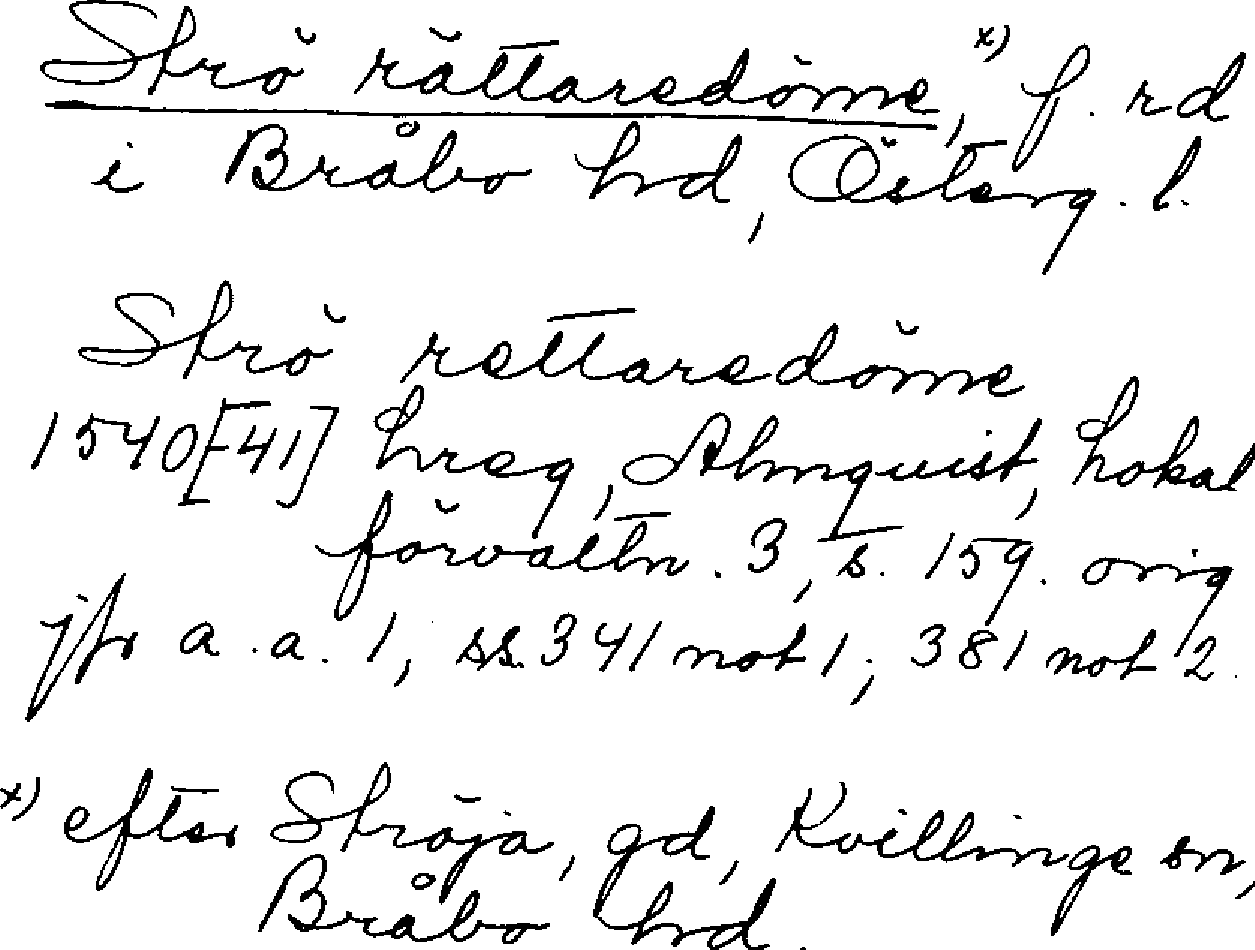 Strö rättaredöme,ˣ⁾ f. rd
i Bråbo hd, Österg. l.
Strö rettaredöme
1540[-41] hreg, Almquist, Lokal
förvaltn. 3, s. 159. orig
jfr a. a. 1, ss. 341 not 1; 381 not 2.
x) efter Ströja, gd, Kvillinge sn,
Bråbo hd.